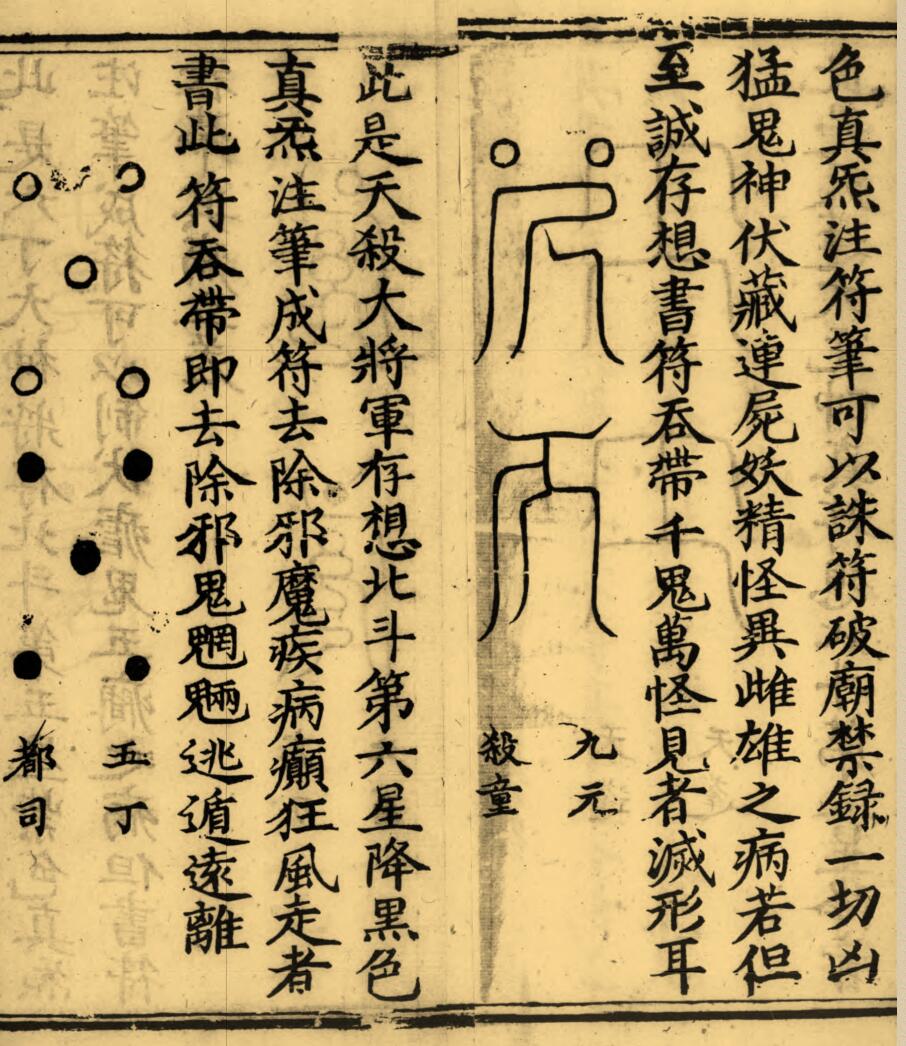 色真炁注符筆可以誅符破廟禁録一切凶
猛鬼神伏藏連屍妖精怪異雌雄之病若但
至誠存想書符吞帶千鬼萬怪見者滅形耳
九元
殺童
此是天殺大將軍存想北斗第六星降黑色
真炁注筆成符去除邪魔疾病癲狂風走者
書此符吞帶即去除邪鬼魍魎逃遁遠離
五丁
都司